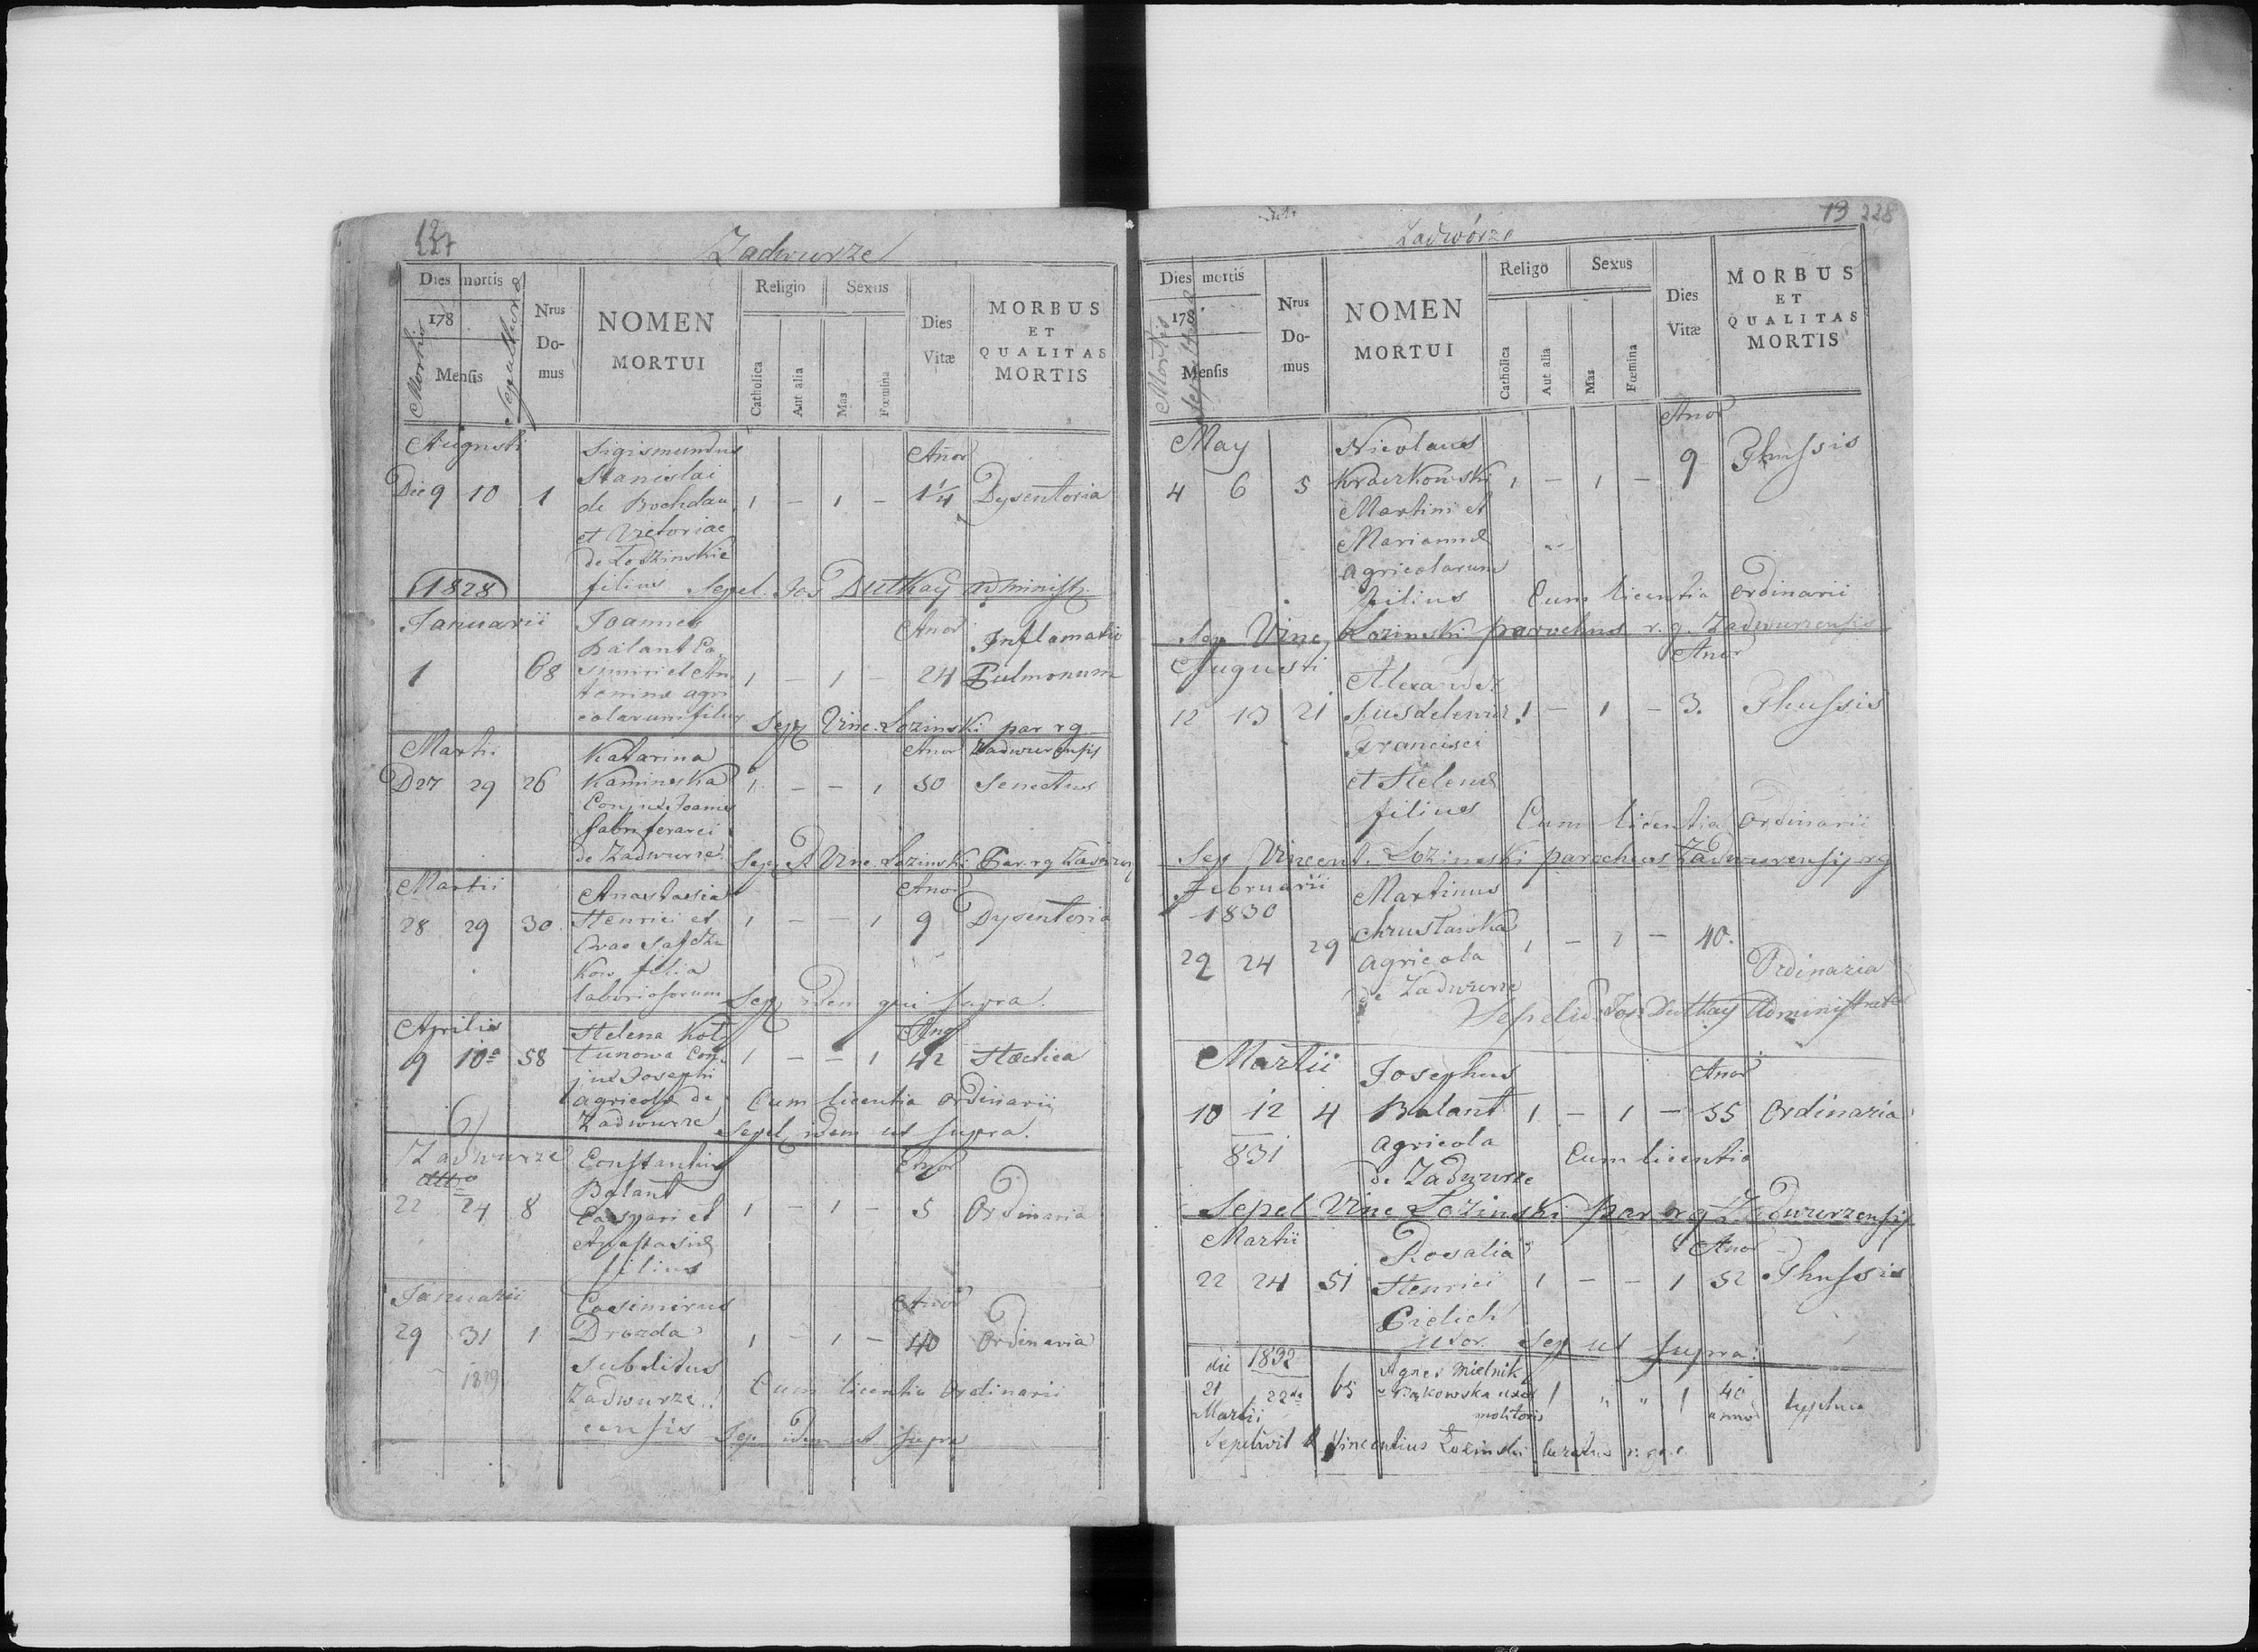 227
Zadwurze
Dies mortis
178
Mensis
Mortis
Sepulturæ
Nrus
Do-
mus
NOMEN
MORTUI
Religio
Catholica
Aut alia
Sexus
Mas
Fœmina
Dies
Vitæ
MORBUS
ET
QUALITAS
MORTIS
Augusti
Die 9 10 1
Sigismundus
Stanislai
de Bochdan
et Victoriae
de Łozinskie
filius
1 - 1 -
Anor
1 1/4
Dysenteria
Sepel. Jos Dutkay administ.
1828
Januarii
1 68
Joannes
Balant Ca
simiri et An
toninæ agri
colarum filius
1 - 1 -
Anor
24
Inflamatio
Pulmonum
Sep Vinc. Lozinski par rg
Zadwurensis
Martii
D 27 29 26
Katarina
Kaminska
Conjux Joannis
fabri ferarei
de Zadwurze
1 - - 1
Anor
50
Senectus
Sep R Vinc. Lozinski Par. rg Zadwur
Martii
28 29 30
Anastasia
Henrici et
Evae
kow filia
laboriosorum
1 - - 1
Anor
9
Dysenteria
Sep idem qui supra.
Aprilis
9 10a 58
Helena Kol
tunowa Con
jux Josephi
agricolæ de
Zadwurze
1 - - 1
Anor
42
Hectica
Cum licentia ordinarii
Sepel idem ut supra.
Zadwurze
22 24 8
Constantin
Balant
Caspari et
Anastasiæ
filius
1 - 1 -
Anor
5
Ordinaria
Januarii
29 31 1
1829
Casimirus
Drozda
Subditus
Zadwurze
ensis
1 - 1 -
Anor
40
Ordinaria
Cum licentia Ordinarii
Sep idem ut supra
13 228
Zadwórze
Dies mortis
178
Mensis
Mortis
Sepulturæ
Nrus
Do-
mus
NOMEN
MORTUI
Religo
Catholica
Aut alia
Sexus
Mas
Fœmina
Dies
Vitæ
MORBUS
ET
QUALITAS
MORTIS
May
4 6 5
Nicolaus
Kraczkowski
Martini et
Mariannæ
agricolarum
filius
1 - 1 -
Anor
9
Thussis
Cum licentia ordinarii
Sep Vinc. Lozinski parochus r.g. Zadwurzensis
Augusti
12 13 21
Alexander
Francisci
et Helenæ
filius
1 - 1 -
Anor
3.
Thussis
Cum licentia Ordinarii
Sep Vincent. Lozinski parochus Zadwurensis rg
Februarii
1830
22 24 29
Martinus
Chrustawka
agricola
de Zadwurze
1 - 1 -
40.
Ordinaria
Sepeliv. Jos Dutkay Administrator
Martii
10 12 4
831
Josephus
Balant
agricola
de Zadwurze
1 - 1 -
Anor
55
Ordinaria
Cum licentia
Sepel Vinc Lozinski par rg Zadwurzensis
Martii
22 24 51
Rosalia
Henrici
Cielich
uxor.
1 - - 1
Anor
52
Thussis
Sep ut supra.
die 1832
21 22da 65
Martii
Agnes Mielnik
Rąkowska uxor
molitoris
1 " " 1
40
annor
typhus
Sepelivit Vincentius Łoziński Curatus r. g. c.